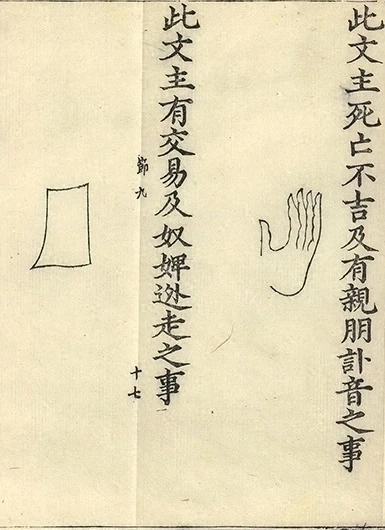 此文主死亡不吉及有親朋訃音之事
此文主有交易及奴婢迯走之事
節九
十七